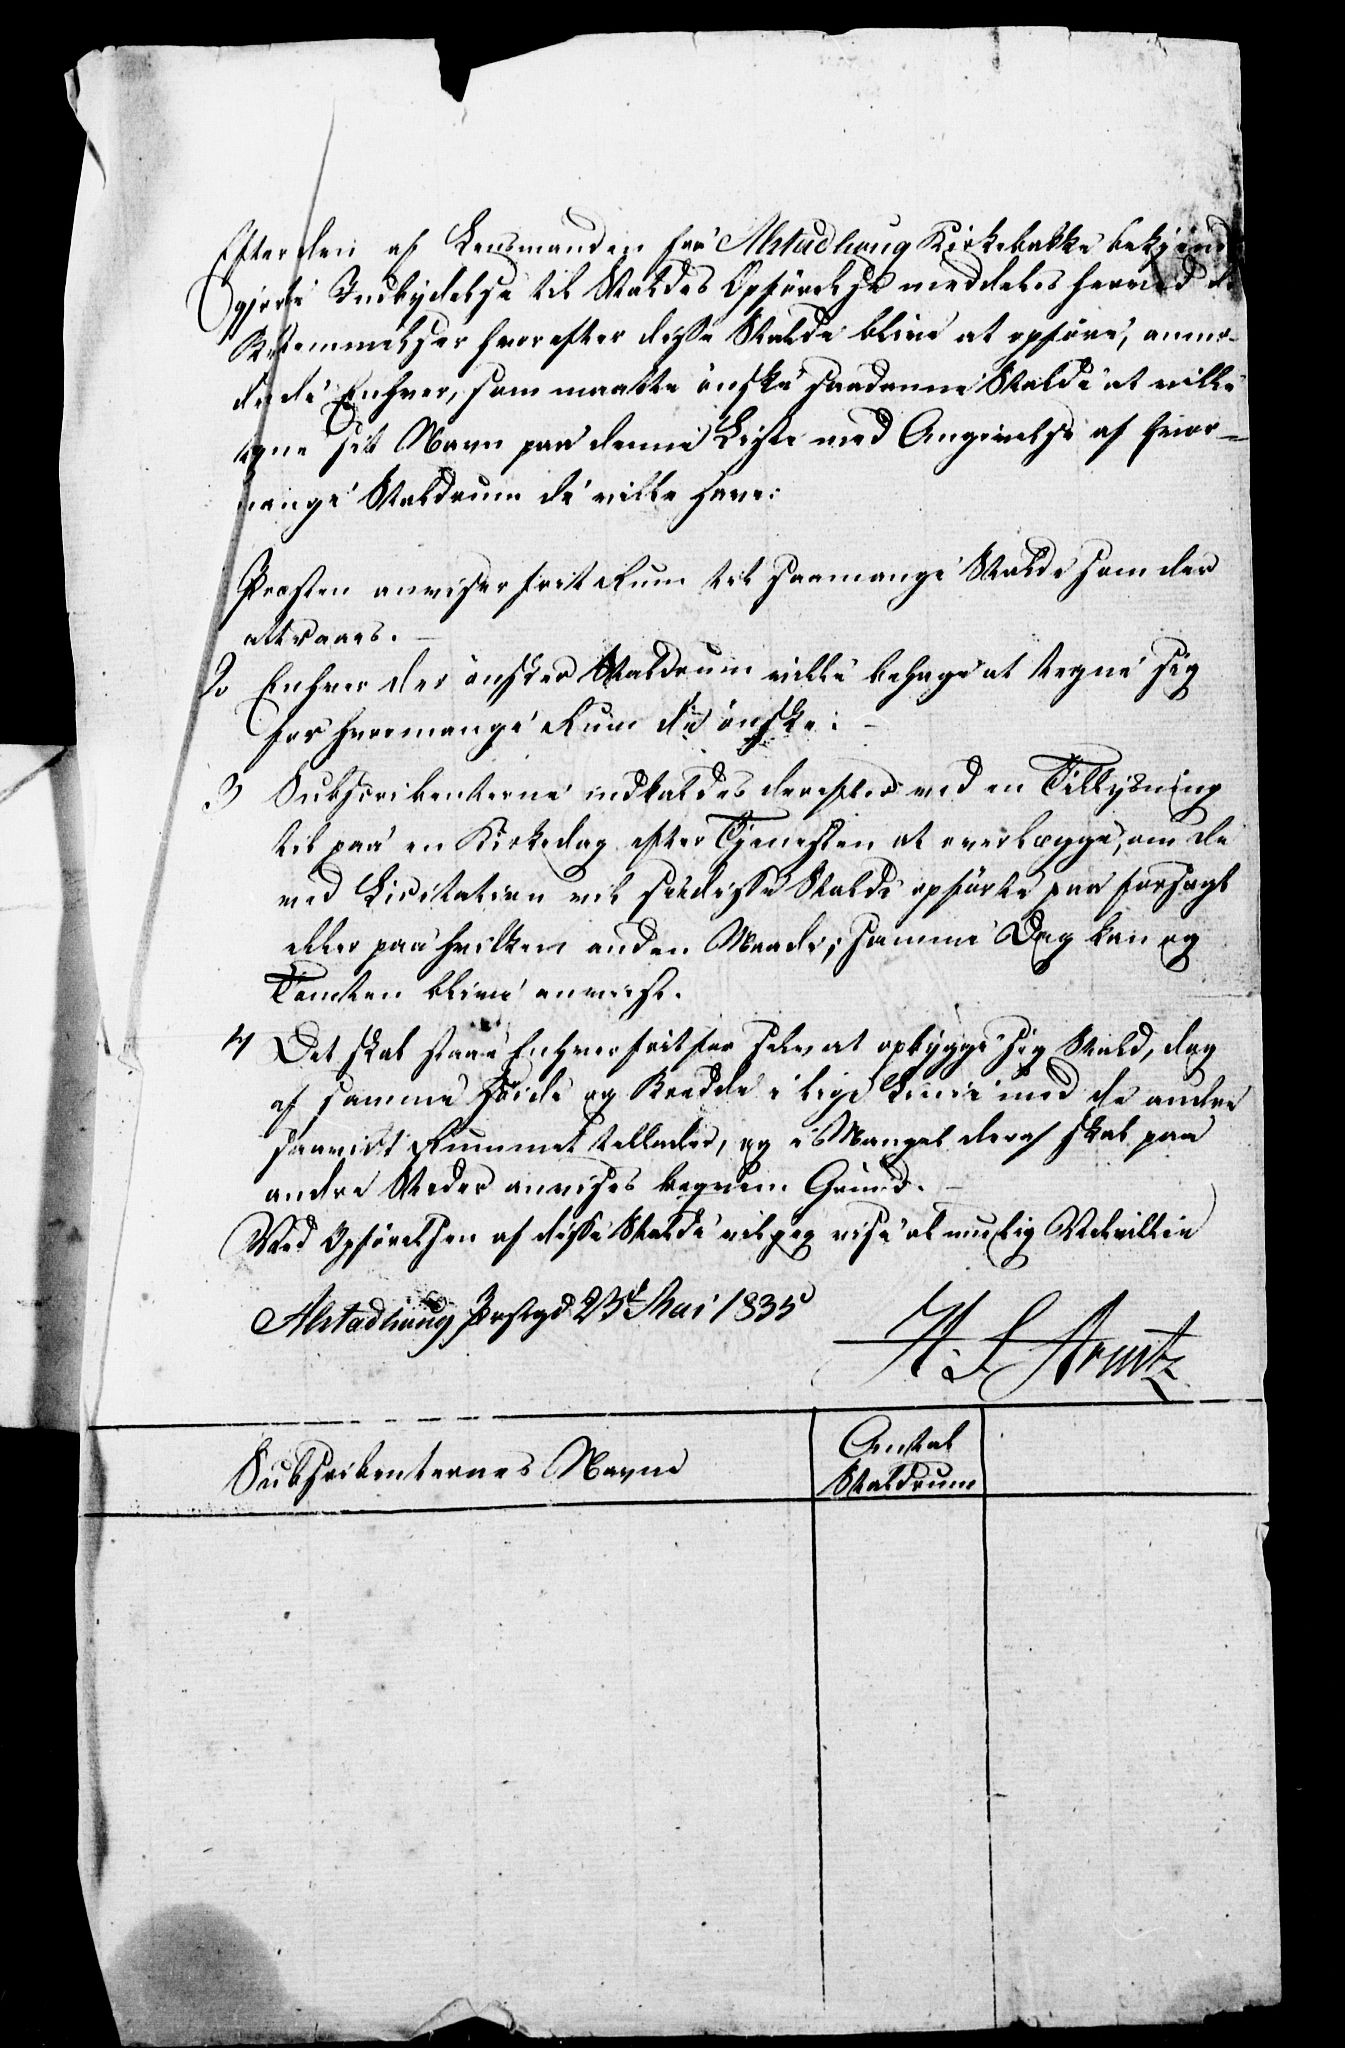 Efter den af Lensmanden fra Alstadhoug Kirkebakke bekjendt
gjorte Indbydelse til Staldes Opförelse meddeles herved de
Bestemmelser hvorefter disse Stalde blive at opföre, anmo-
dede Enhver, som maatte önske saadanne Stalde at ville
tegne sit Navn paa denne Liste med Angivelse af hvor-
mange Staldrum de ville have:
Præsten anviser frit Rum til saamange Stalde som der
attraaes.
2 Enhver der önsker Staldrum ville behage at tegne sig
for hvormange Rum de önske:
3 Subscribenterne indkaldes derefter ved en Tillysning
til paa en Kirkedag efter Tjenesten at overlægge, om de
ved Licitation vil see disse Stalde opförte paa forsagt
eller paa hvilken anden Maade; samme Dag kan og
Tomten blive anviist.
4 Det skal staae Enhver frit for selv at opbygge sig Stald, dog
af samme Höide og Bredde i lige Linie med de andre
saavidt Rummet tillader, og i Mangel deraf skal paa
andre Steder anvises beqvem Grund.
Ved Opförelsen af disse Stalde vil jeg vise al muelig Velvillie
Alstadhoug Prstgd 23d Mai 1835
H. L Arntz
Subscribenternes Navne
Antal
Staldrum